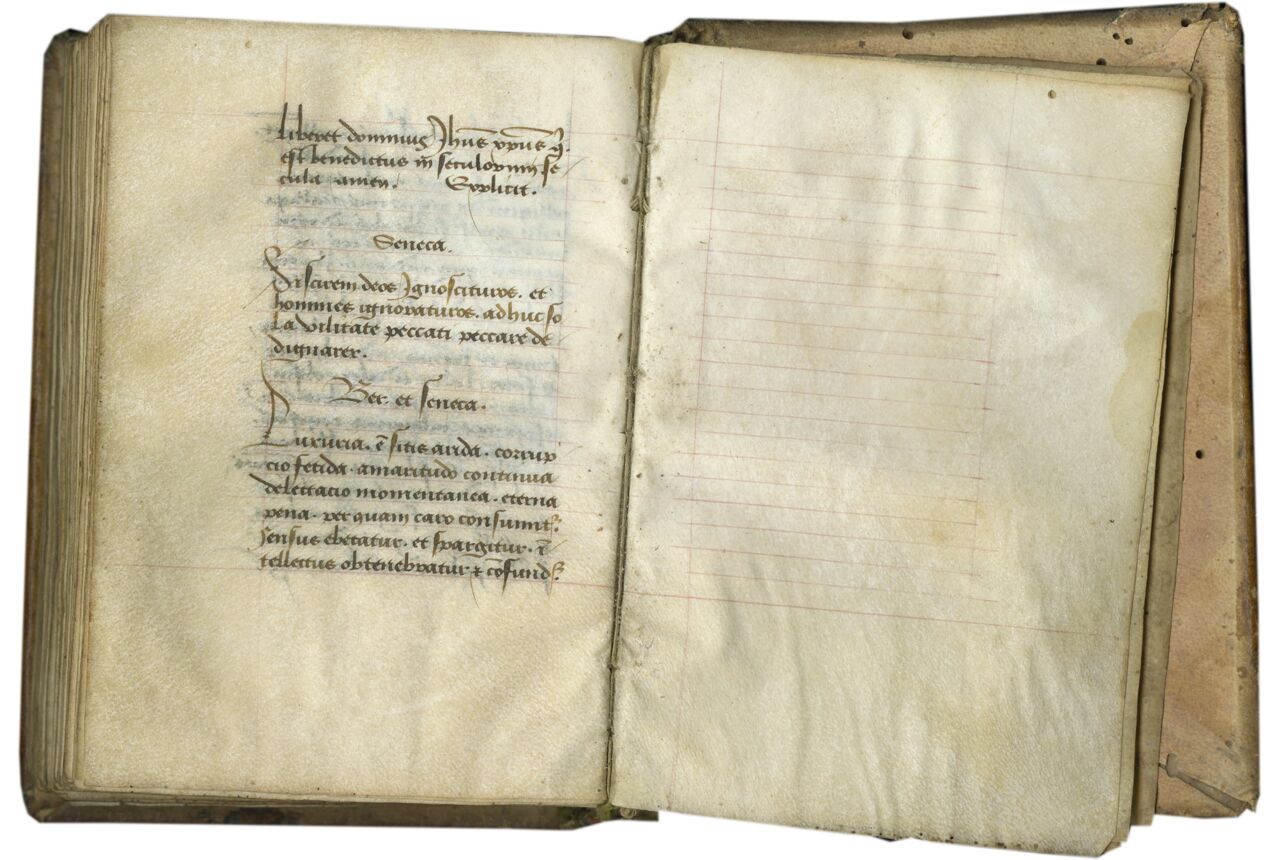 liberet dominus Jhūs xp̄us q̄
est benedictus in seculorum se
cula amen. Explicit.
Seneca.
Si scirem deos Ignoscituros. et
homines ignoraturos. adhuc so
la vilitate peccati peccare de
dignarer.
Ber. et seneca.
Luxuria. ē sitis arida. corrup
cio fetida. amaritudo continua
delectacio momentanea. eterna
pena. per quam caro consumit᷑.
sensus ebetatur. et spargitur. ī
tellectus obtenebratur ⁊ cōfund᷑.